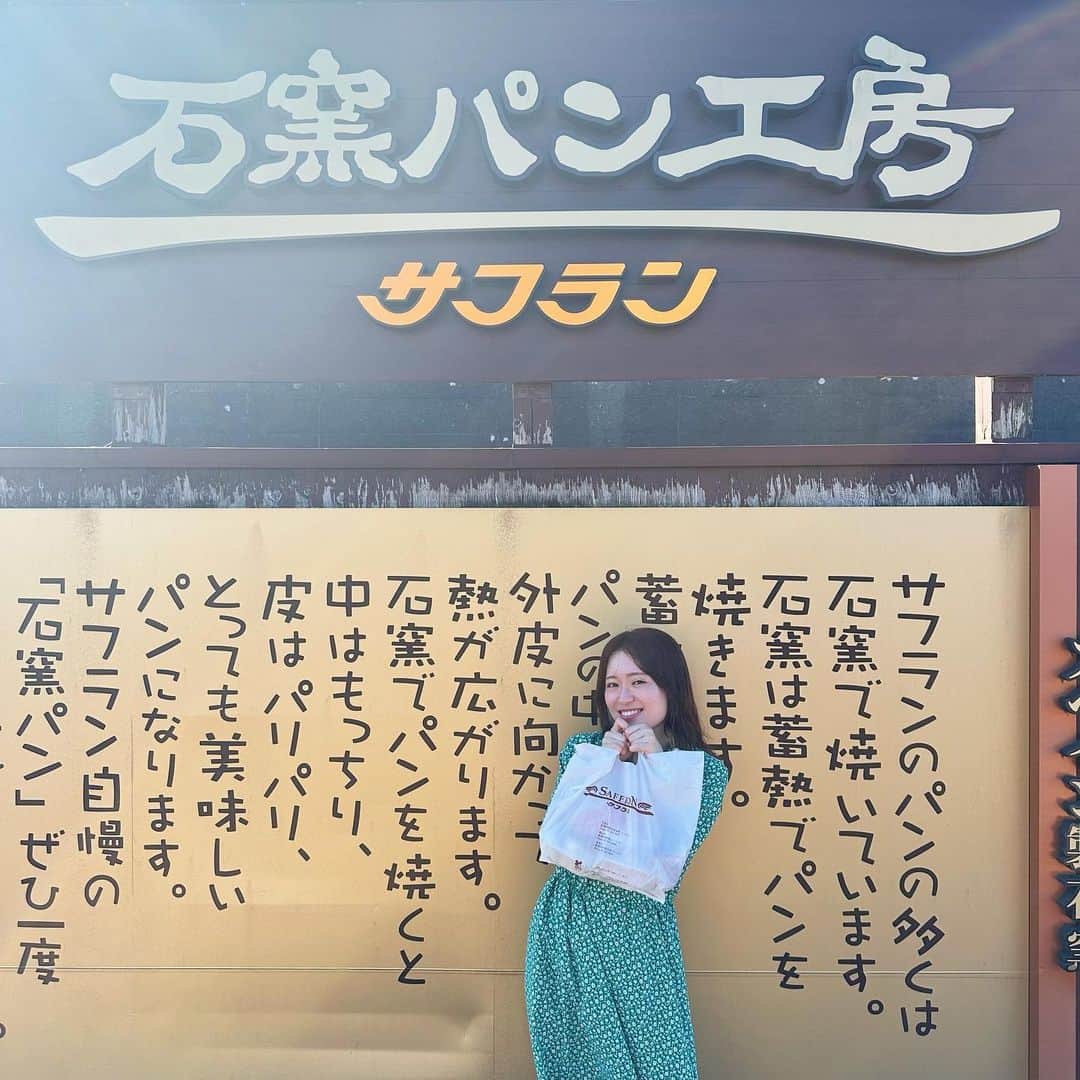 石窯パン工房
サフラン
サフランのパンの多くは
石窯で焼いています。
石窯は蓄熱でパンを
焼きます。
蓄
パンの中
外皮に向か
熱が広がります。
石窯でパンを焼くと
中はもっちり、
皮はパリパリ、
とっても美味しい
パンになります。
サフラン自慢の
「石窯パン」ぜひ一度
サフラン